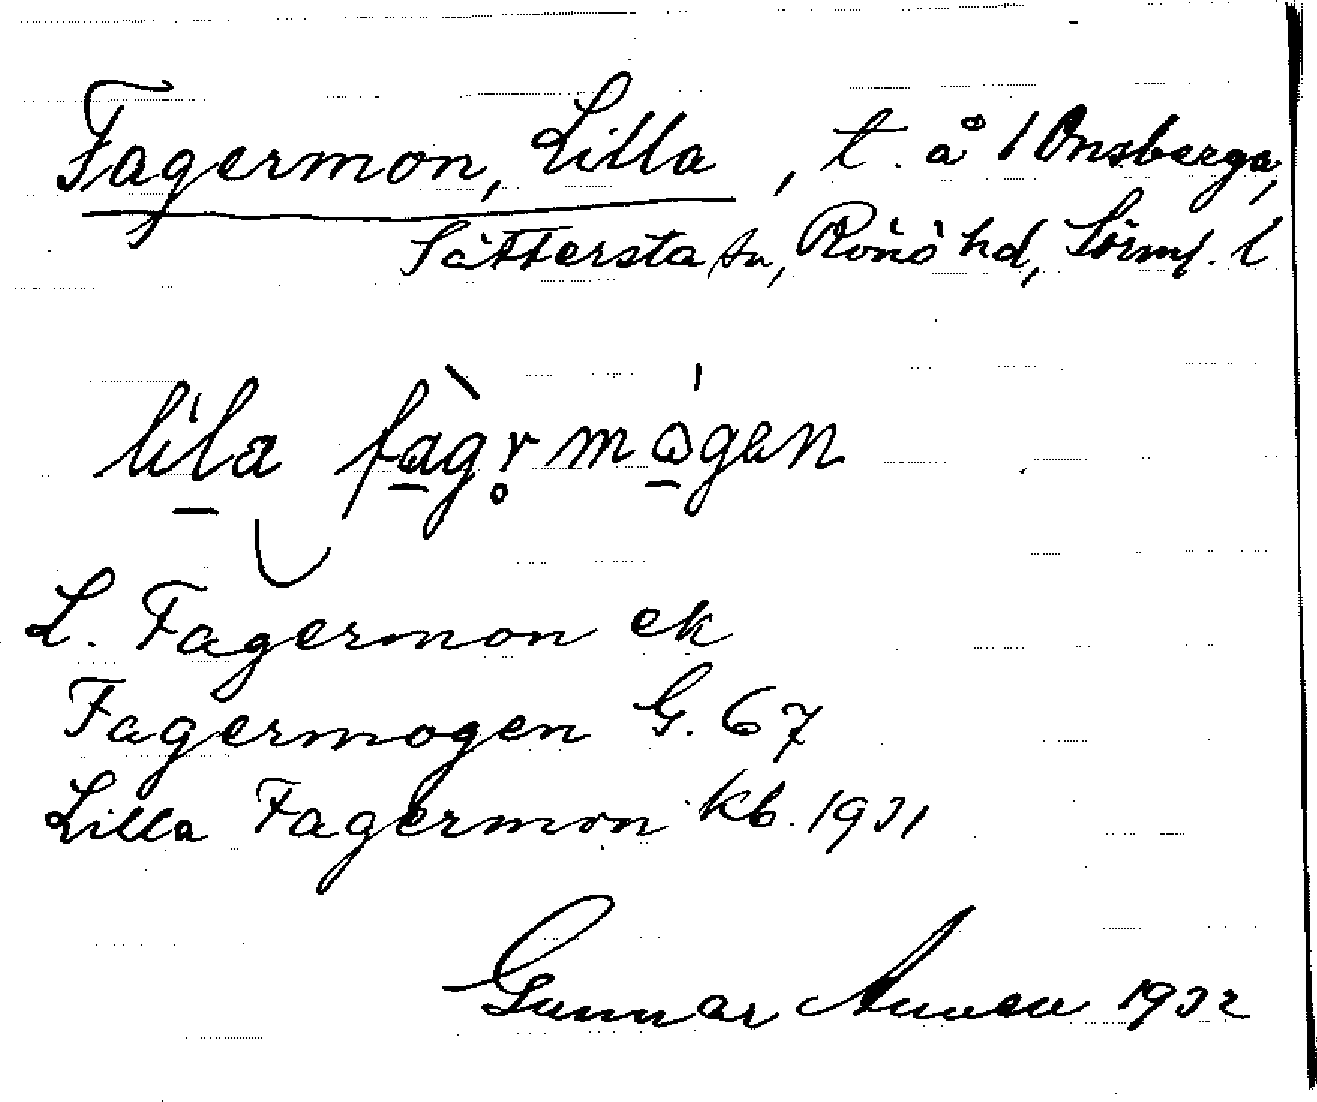 Fagermon, Lilla, t. å 1 Onsberga,
Sättersta sn, Rönö hd, Sörml. l
lila fàgr̥mógan
L. Fagermon ek
Fagermogen G. 67
Lilla Fagermon kb. 1931
Gunnar 1932